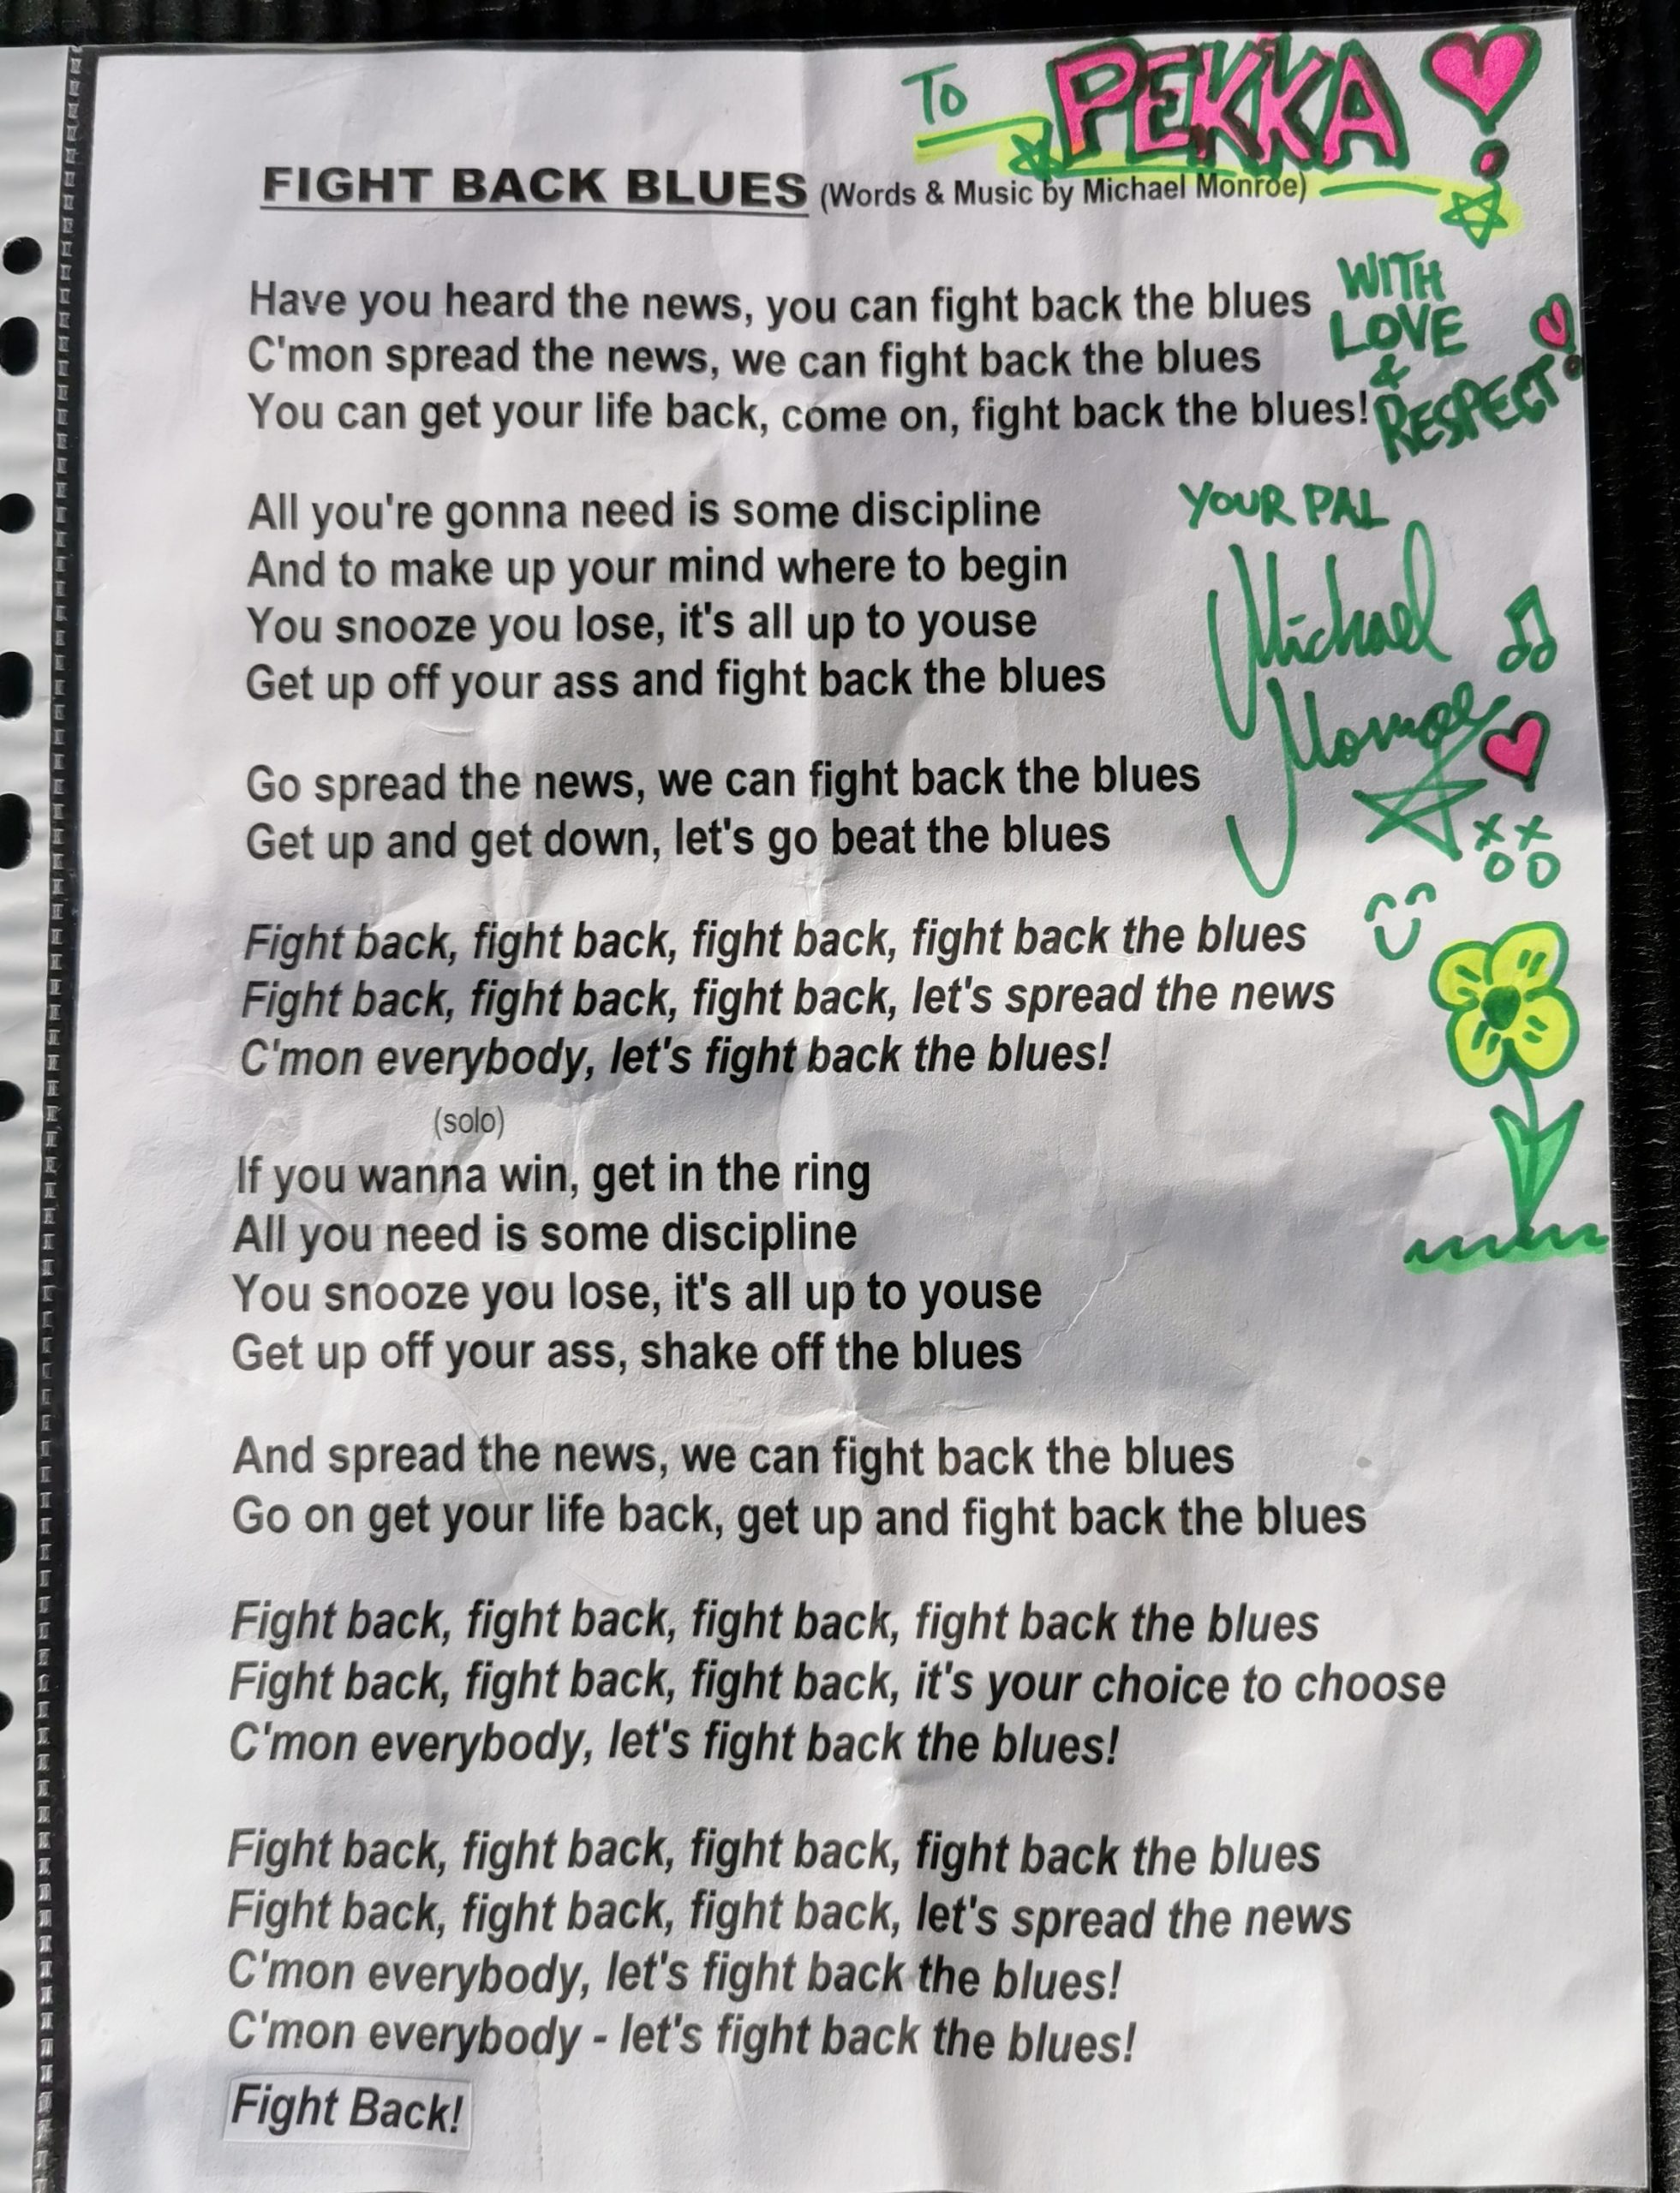 To PEKKA
FIGHT BACK BLUES (Words & Music by Michael Monroe)
Have you heard the news, you can fight back the blues
C'mon spread the news, we can fight back the blues
You can get your life back, come on, fight back the blues!
WITH
LOVE
&
RESPECT!
All you're gonna need is some discipline
And to make up your mind where to begin
You snooze you lose, it's all up to youse
Get up off your ass and fight back the blues
YOUR PAL
Michael
Monroe
Go spread the news, we can fight back the blues
Get up and get down, let's go beat the blues
xx
oo
Fight back, fight back, fight back, fight back the blues
Fight back, fight back, fight back, let's spread the news
C'mon everybody, let's fight back the blues!
(solo)
If you wanna win, get in the ring
All you need is some discipline
You snooze you lose, it's all up to youse
Get up off your ass, shake off the blues
And spread the news, we can fight back the blues
Go on get your life back, get up and fight back the blues
Fight back, fight back, fight back, fight back the blues
Fight back, fight back, fight back, it's your choice to choose
C'mon everybody, let's fight back the blues!
Fight back, fight back, fight back, fight back the blues
Fight back, fight back, fight back, let's spread the news
C'mon everybody, let's fight back the blues!
C'mon everybody - let's fight back the blues!
Fight Back!